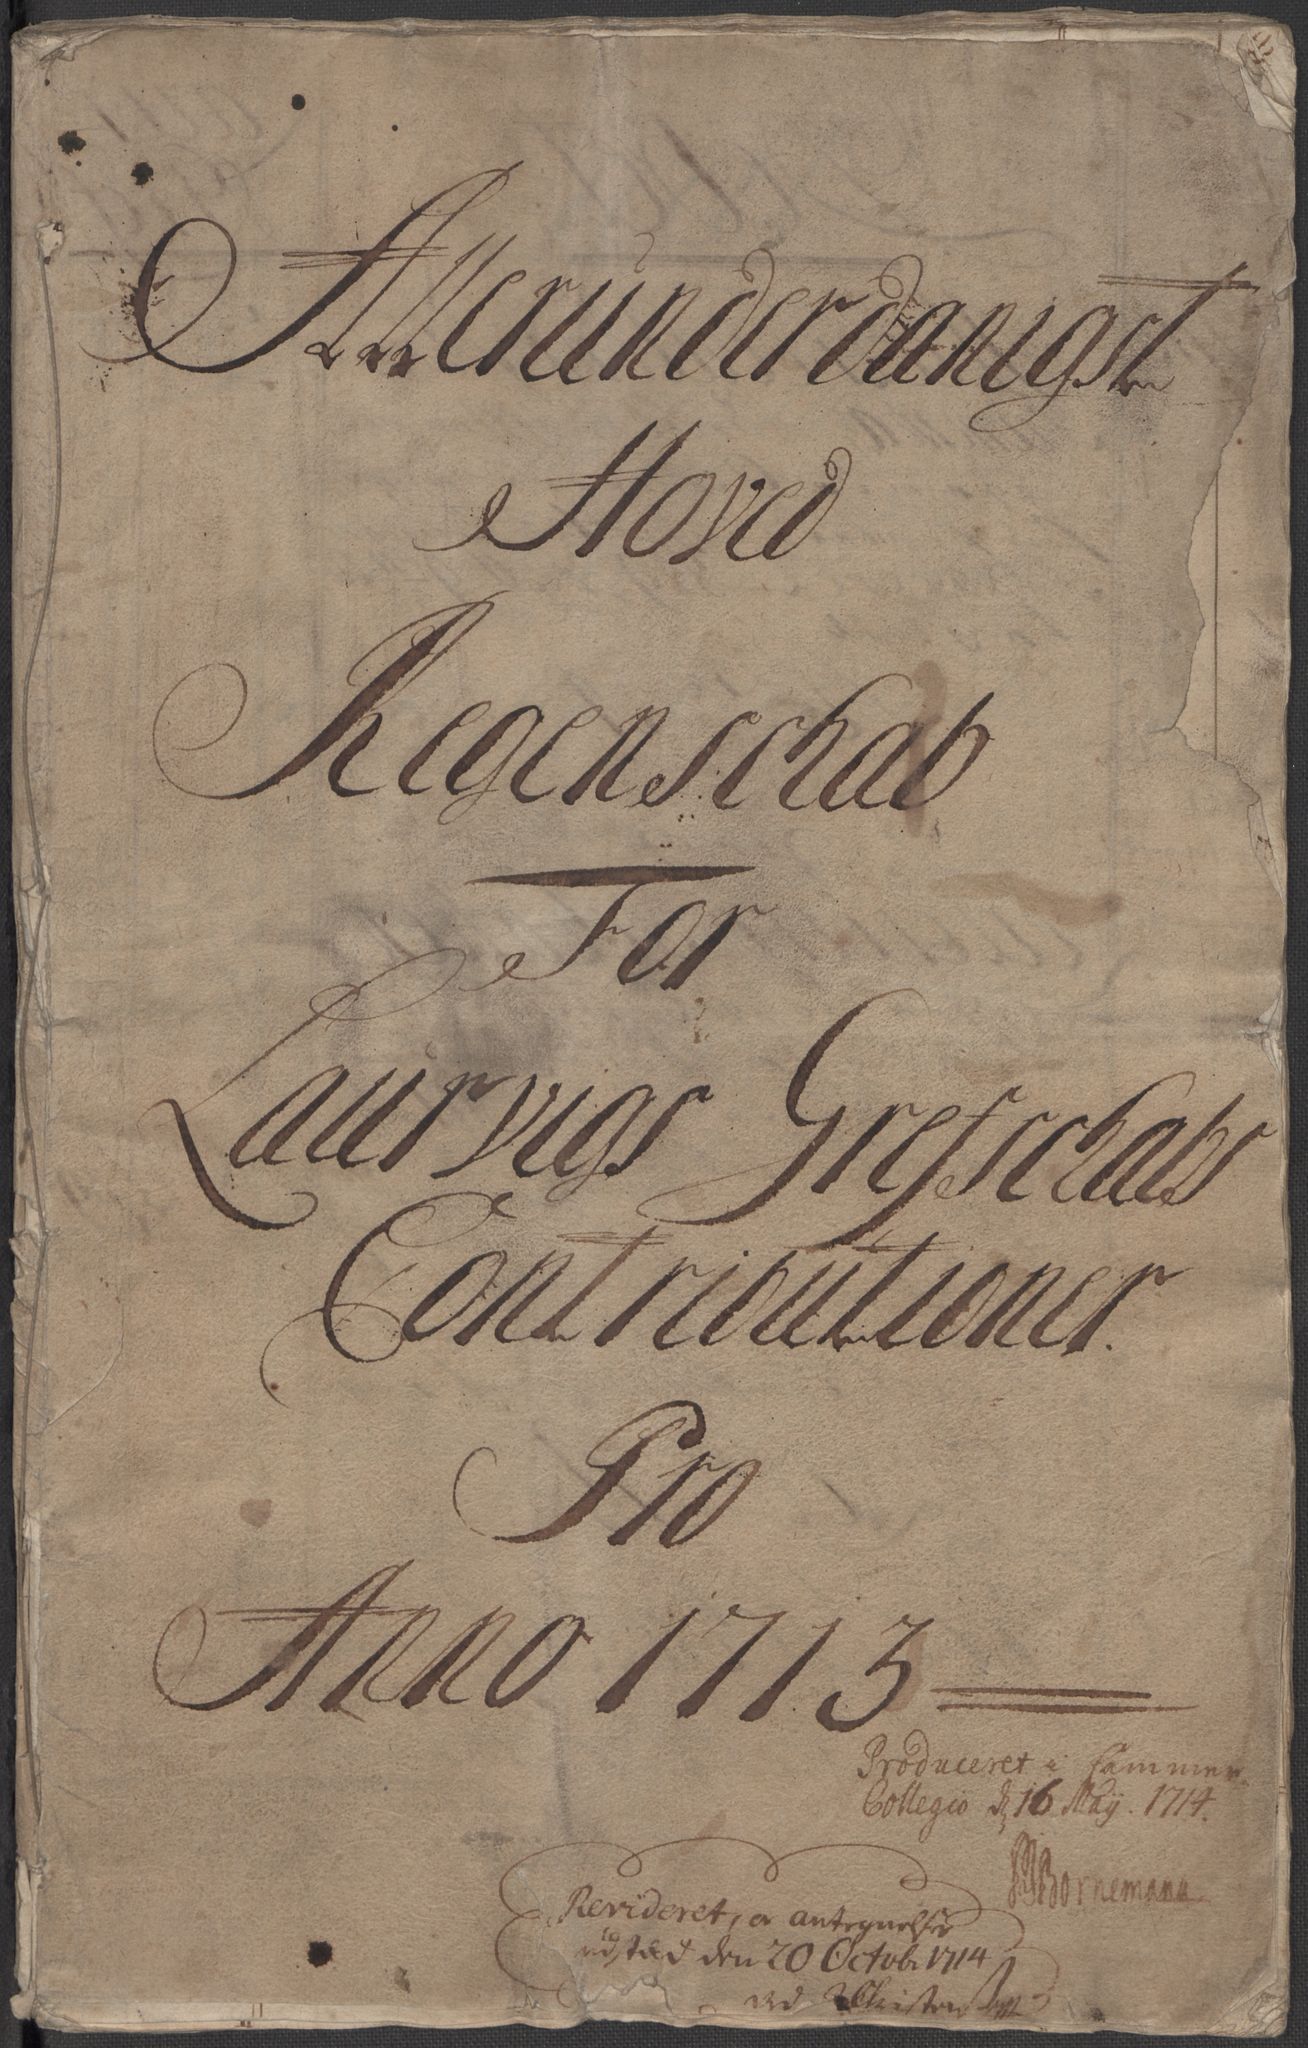 Allerunderdanigst
Hoved
Regenschab
For
Laurvigs Grefschabs
Contributioner.
Pro
Anno 1713
Produceret i Cammer
Collegio d. 16 Maij. 1714.
Bornemann
Revideret, og antegnelser
udstæd den 20 Octob. 1714